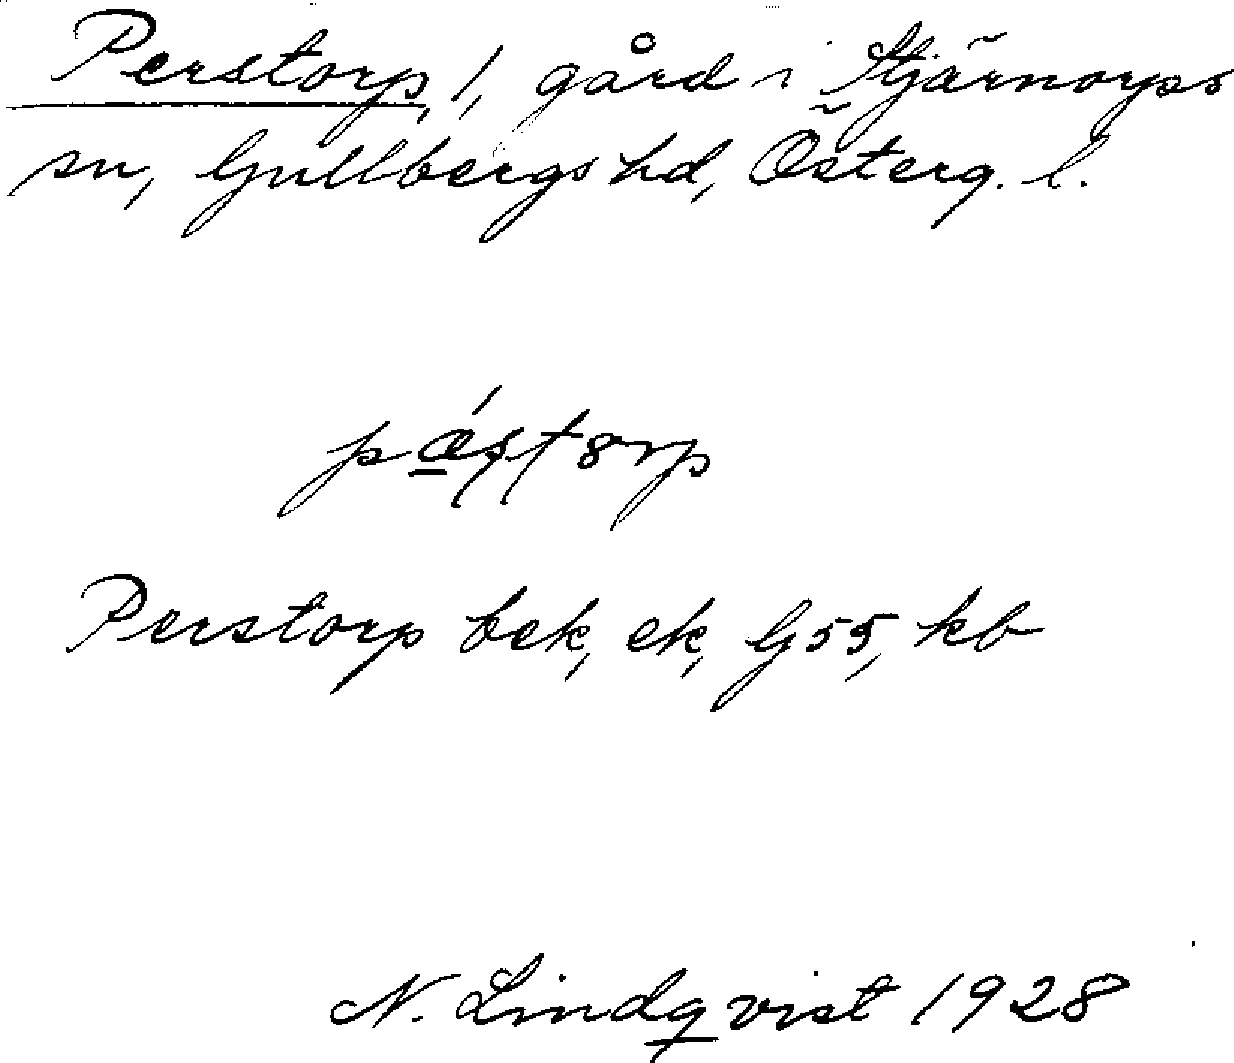 Perstorp, 1, gård i Stjärnorps
sn, Gullbergs hd, Österg. l.
pǽ̱størp
Perstorp bek, ek, G55, kb
N. Lindqvist 1928